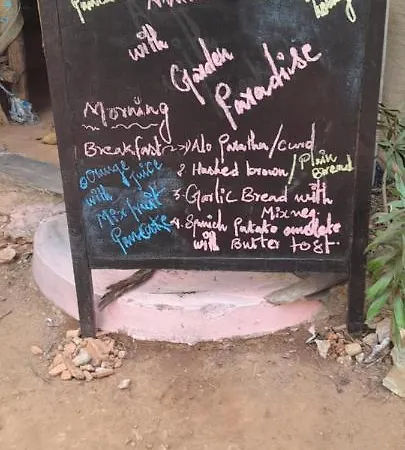 with
Garden
Paradise
Morning
Breakfast Alo Paratha/Curd
2 Hashed brown/Plain Bread
3. Garlic Bread with
Mix veg
4. Spnich Patato omolate
with Butter tost.
Orange juice
with
Mix fruit
Pancake